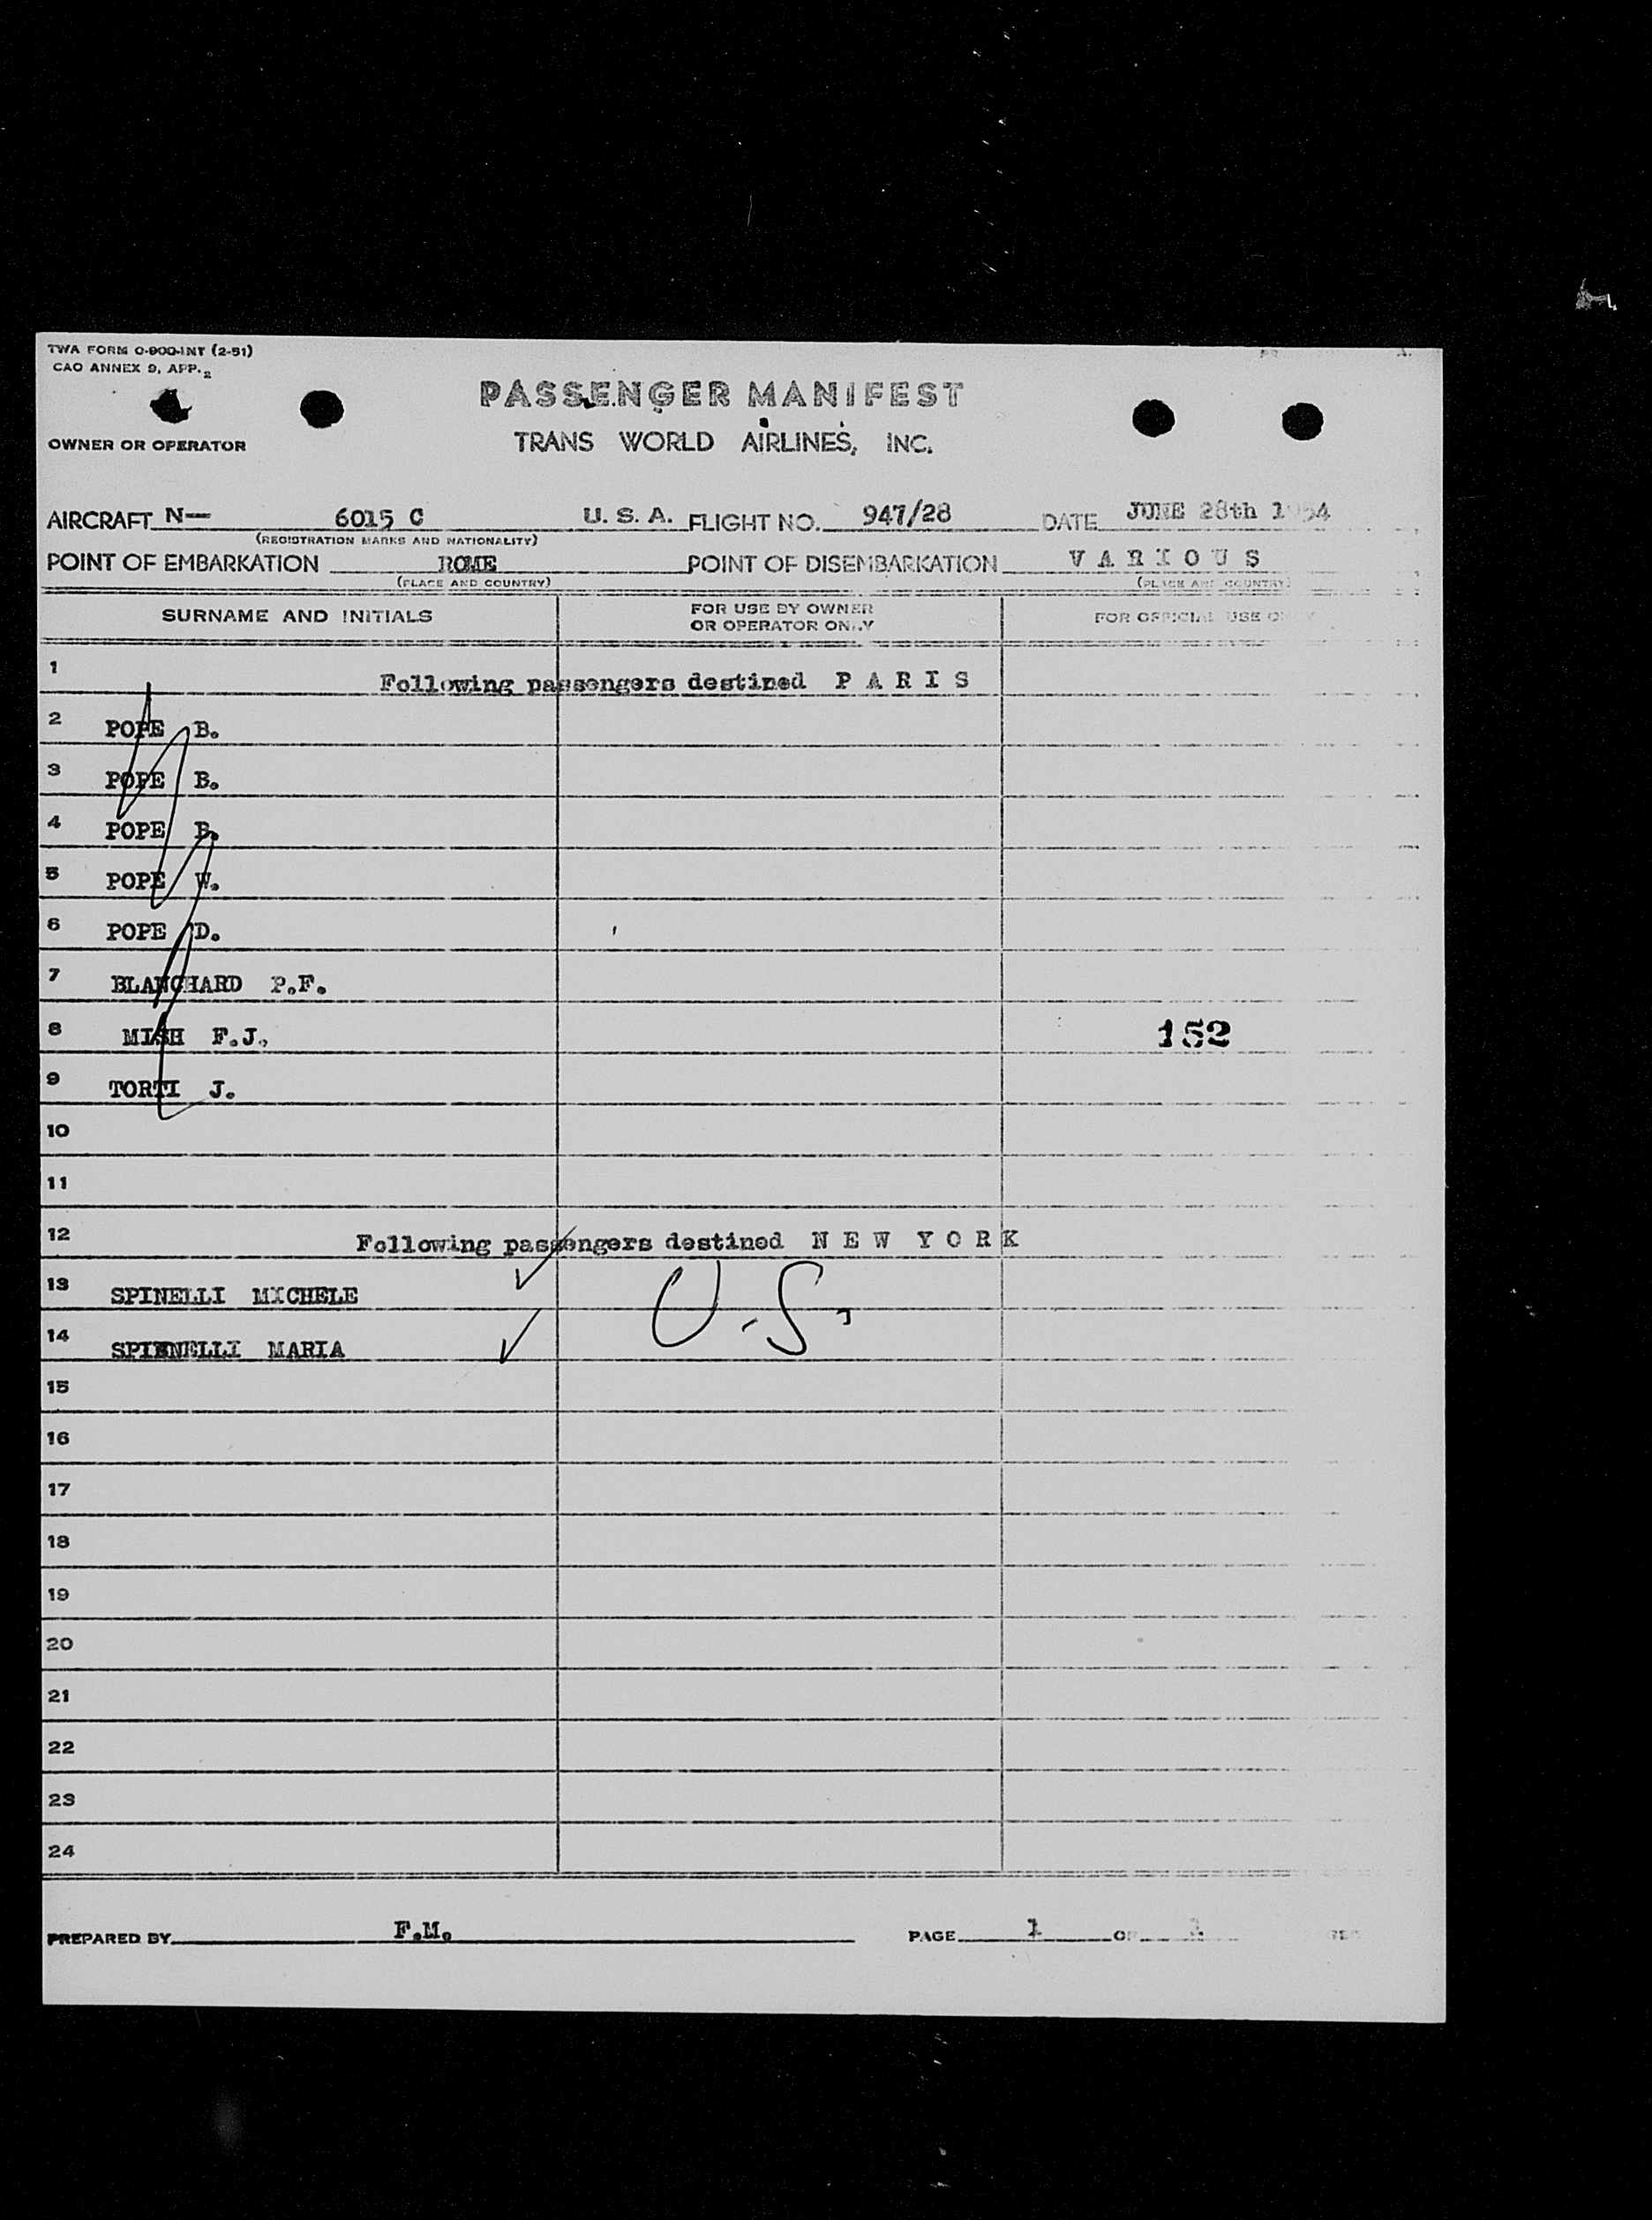 TWA FORM O-900-INT (2-51)
CAO ANNEX 9, APP. 2
PASSENGER MANIFEST
OWNER OR OPERATOR
TRANS WORLD AIRLINES, INC.
AIRCRAFT N— 6015 C U. S. A. FLIGHT NO. 947/28 DATE JUNE 28th 1954
(REGISTRATION MARKS AND NATIONALITY)
POINT OF EMBARKATION ROME POINT OF DISEMBARKATION V A R I O U S
(PLACE AND COUNTRY) (PLACE AND COUNTRY)
SURNAME AND INITIALS FOR USE BY OWNER OR OPERATOR ONLY FOR OFFICIAL USE ONLY
1 Following passengers destined P A R I S
2 POPE B.
3 POPE B.
4 POPE B.
5 POPE W.
6 POPE D.
7 BLANCHARD P.F.
8 MISH F.J. 152
9 TORTI J.
10
11
12 Following passengers destined N E W Y O R K
13 SPINELLI MICHELE U.S.
14 SPINNELLI MARIA
15
16
17
18
19
20
21
22
23
24
PREPARED BY F.M. PAGE 1 OF